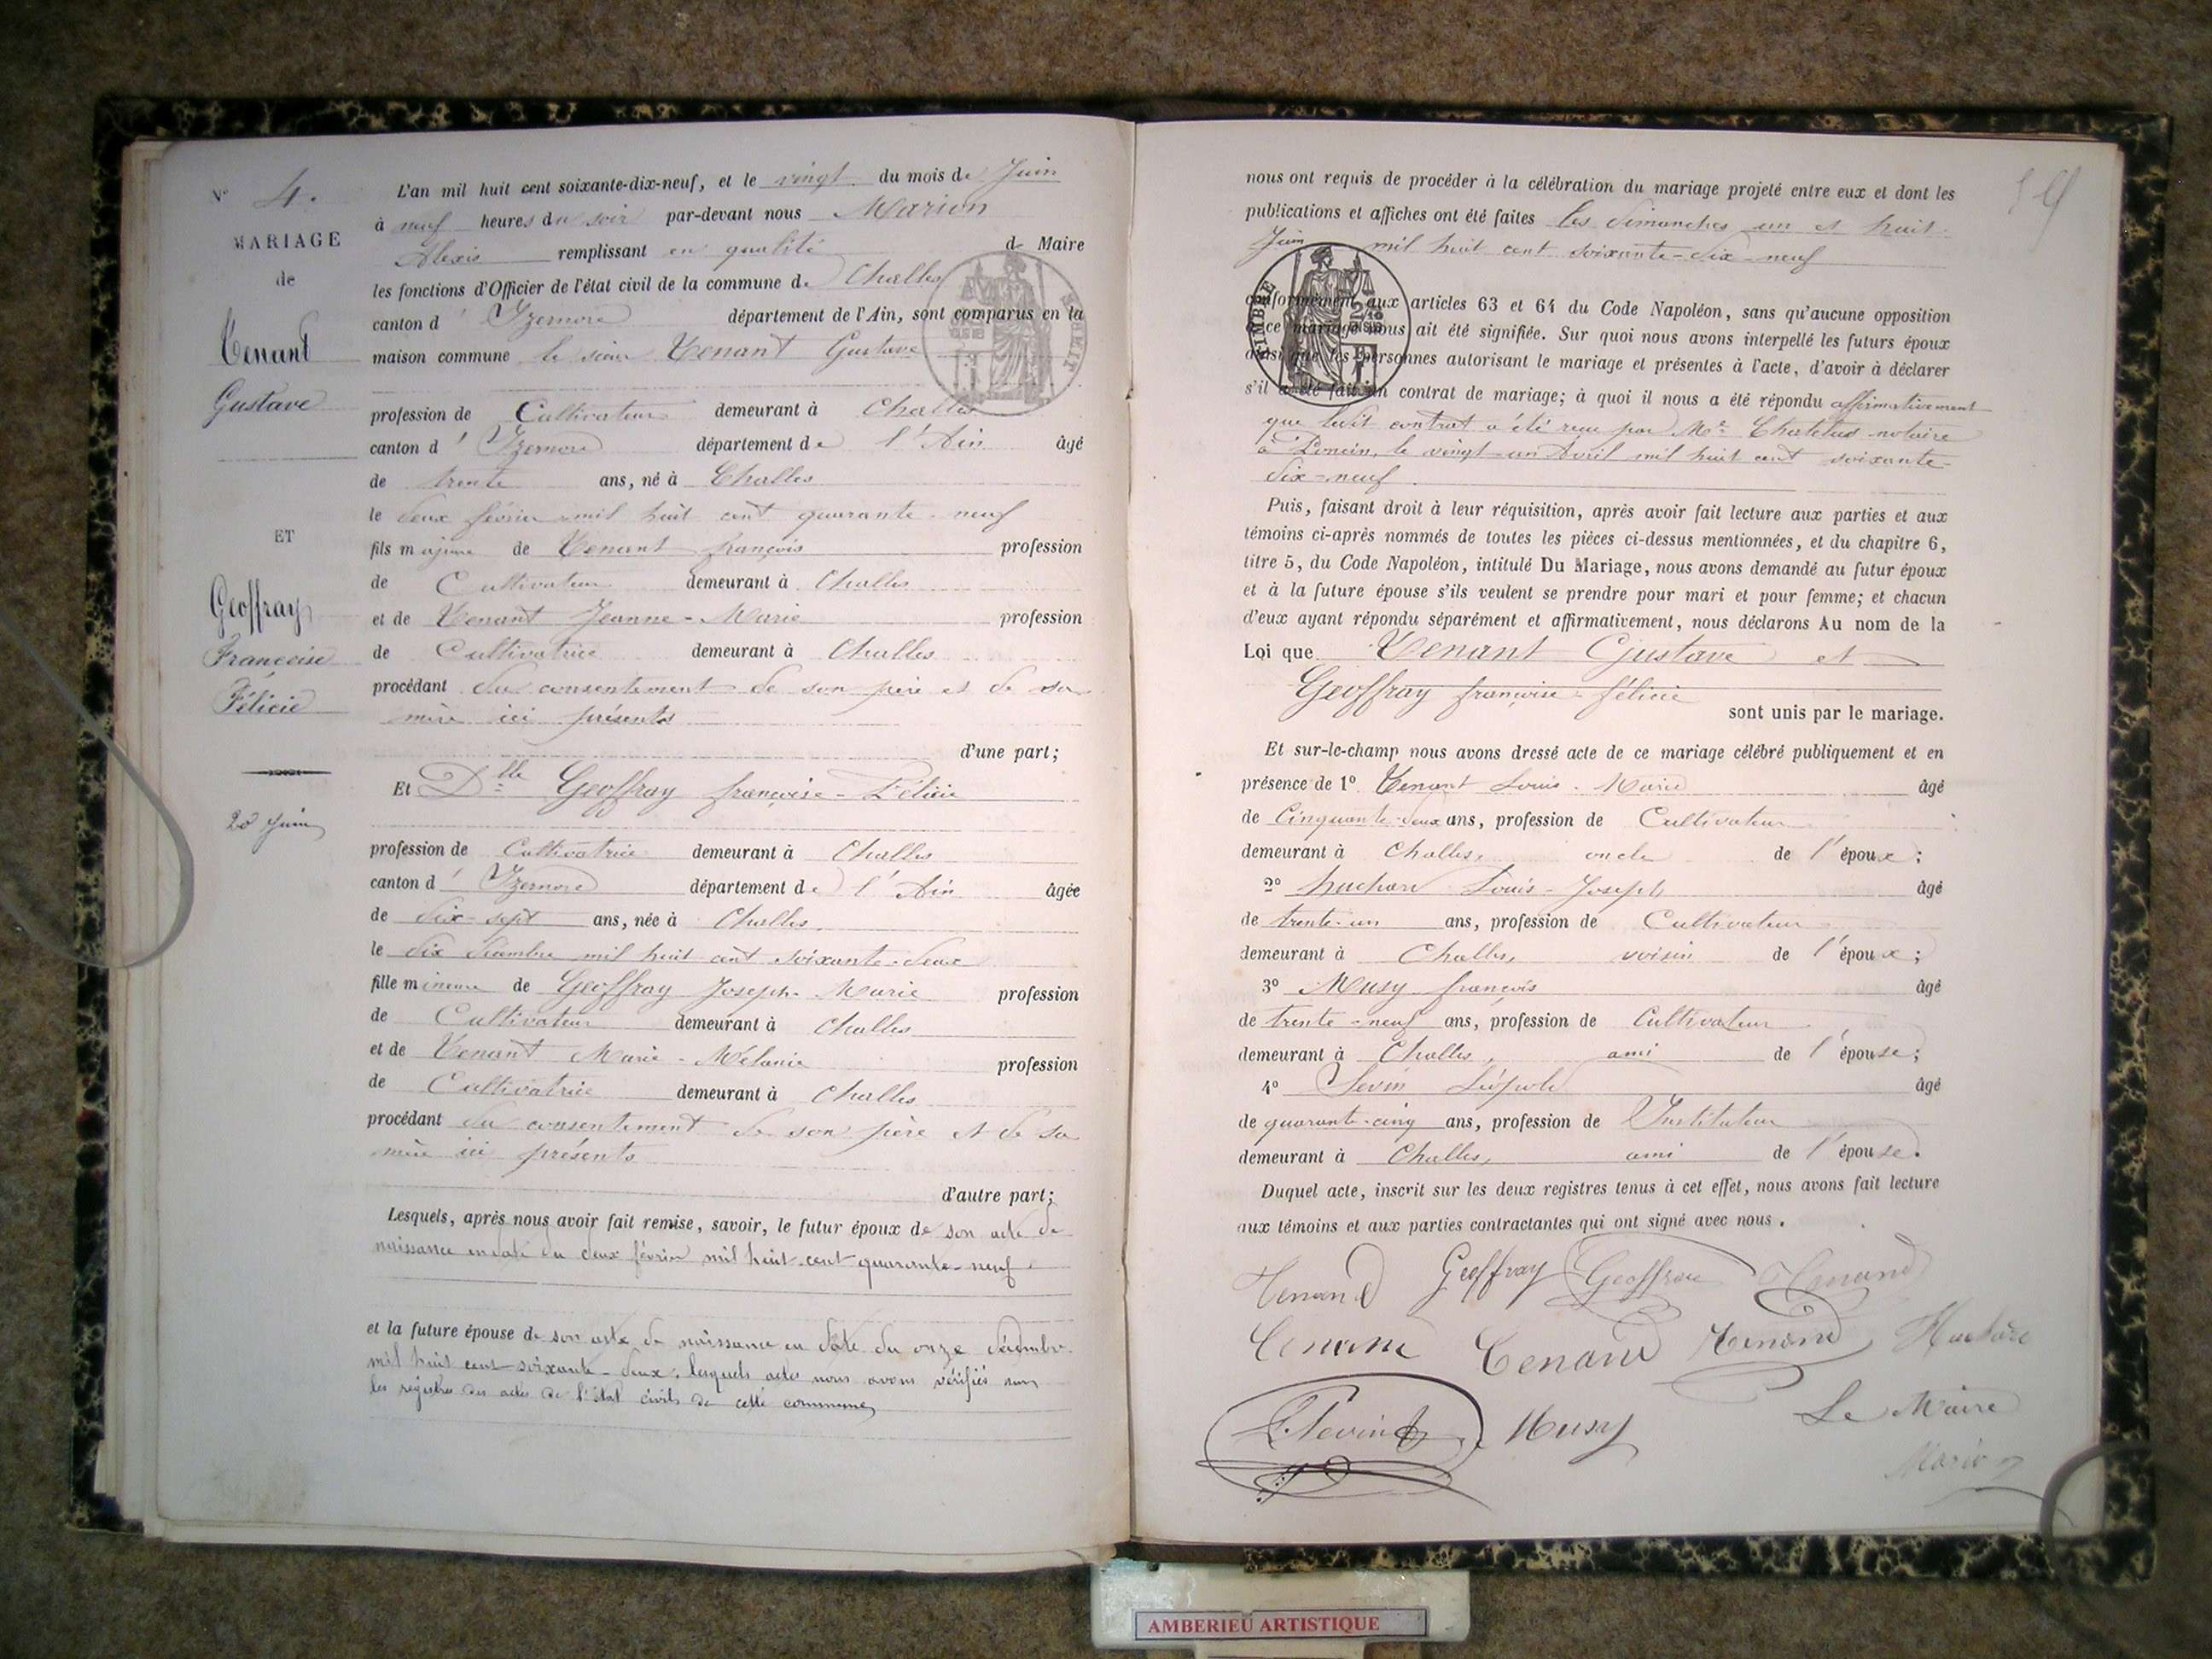 N° 4.
MARIAGE
de
Tenant
Gustave
ET
Geoffray
Françoise
Félicie
20 Juin
L'an mil huit cent soixante-dix-neuf, et le vingt du mois de Juin
à neuf heures du soir par-devant nous Marion
Alexis remplissant en qualité de Maire
les fonctions d'Officier de l'état civil de la commune de Challes
canton d'Izernore département de l'Ain, sont comparus en la
maison commune le sieur Tenant Gustave
profession de Cultivateur demeurant à Challes
canton d'Izernore département de l'Ain âgé
de trente ans, né à Challes
le deux février mil huit cent quarante-neuf
fils majeur de Tenant françois profession
de Cultivateur demeurant à Challes
et de Tenant Jeanne-Marie profession
de Cultivatrice demeurant à Challes
procédant du consentement de son père et de sa
mère ici présents
d'une part;
Et Dlle Geoffray françoise-Félicie
profession de Cultivatrice demeurant à Challes
canton d'Izernore département de l'Ain âgée
de dix-sept ans, née à Challes
le dix décembre mil huit cent soixante-deux
fille mineure de Geoffray Joseph-Marie profession
de Cultivateur demeurant à Challes
et de Tenant Marie-Mélanie profession
de Cultivatrice demeurant à Challes
procédant du consentement de son père et de sa
mère ici présents
d'autre part;
Lesquels, après nous avoir fait remise, savoir, le futur époux de son acte de
naissance en date du deux février mil huit cent quarante-neuf
et la future épouse de son acte de naissance en date du onze décembre
mil huit cent soixante-deux, lesquels actes nous avons vérifiés sur
les registres des actes de l'état civils de cette commune
nous ont requis de procéder à la célébration du mariage projeté entre eux et dont les
publications et affiches ont été faites les dimanches un et huit
Juin mil huit cent soixante-dix-neuf
TIMBRE
conformément aux articles 63 et 64 du Code Napoléon, sans qu'aucune opposition
à ce mariage nous ait été signifiée. Sur quoi nous avons interpellé les futurs époux
ainsi que les personnes autorisant le mariage et présentes à l'acte, d'avoir à déclarer
s'il a été fait un contrat de mariage; à quoi il nous a été répondu affirmativement
que ledit contrat a été reçu par Me Chatelus notaire
à Poncin, le vingt-un Avril mil huit cent soixante-
dix-neuf
Puis, faisant droit à leur réquisition, après avoir fait lecture aux parties et aux
témoins ci-après nommés de toutes les pièces ci-dessus mentionnées, et du chapitre 6,
titre 5, du Code Napoléon, intitulé Du Mariage, nous avons demandé au futur époux
et à la future épouse s'ils veulent se prendre pour mari et pour femme; et chacun
d'eux ayant répondu séparément et affirmativement, nous déclarons Au nom de la
Loi que Tenant Gustave et
Geoffray françoise-félicie
sont unis par le mariage.
Et sur-le-champ nous avons dressé acte de ce mariage célébré publiquement et en
présence de 1° Tenant Louis-Marie âgé
de Cinquante-deux ans, profession de Cultivateur
demeurant à Challes, oncle de l'époux;
2° huchard Louis-Joseph âgé
de trente-un ans, profession de Cultivateur
demeurant à Challes, voisin de l'époux;
3° Musy françois âgé
de trente-neuf ans, profession de Cultivateur
demeurant à Challes, ami de l'épouse;
4° Sevin Léopold âgé
de quarante-cinq ans, profession de Instituteur
demeurant à Challes, ami de l'épouse.
Duquel acte, inscrit sur les deux registres tenus à cet effet, nous avons fait lecture
aux témoins et aux parties contractantes qui ont signé avec nous.
Tenand Geoffray Geoffray Tenand
Tenand Tenand Tenand
Musy Le Maire
Marion
AMBERIEU ARTISTIQUE